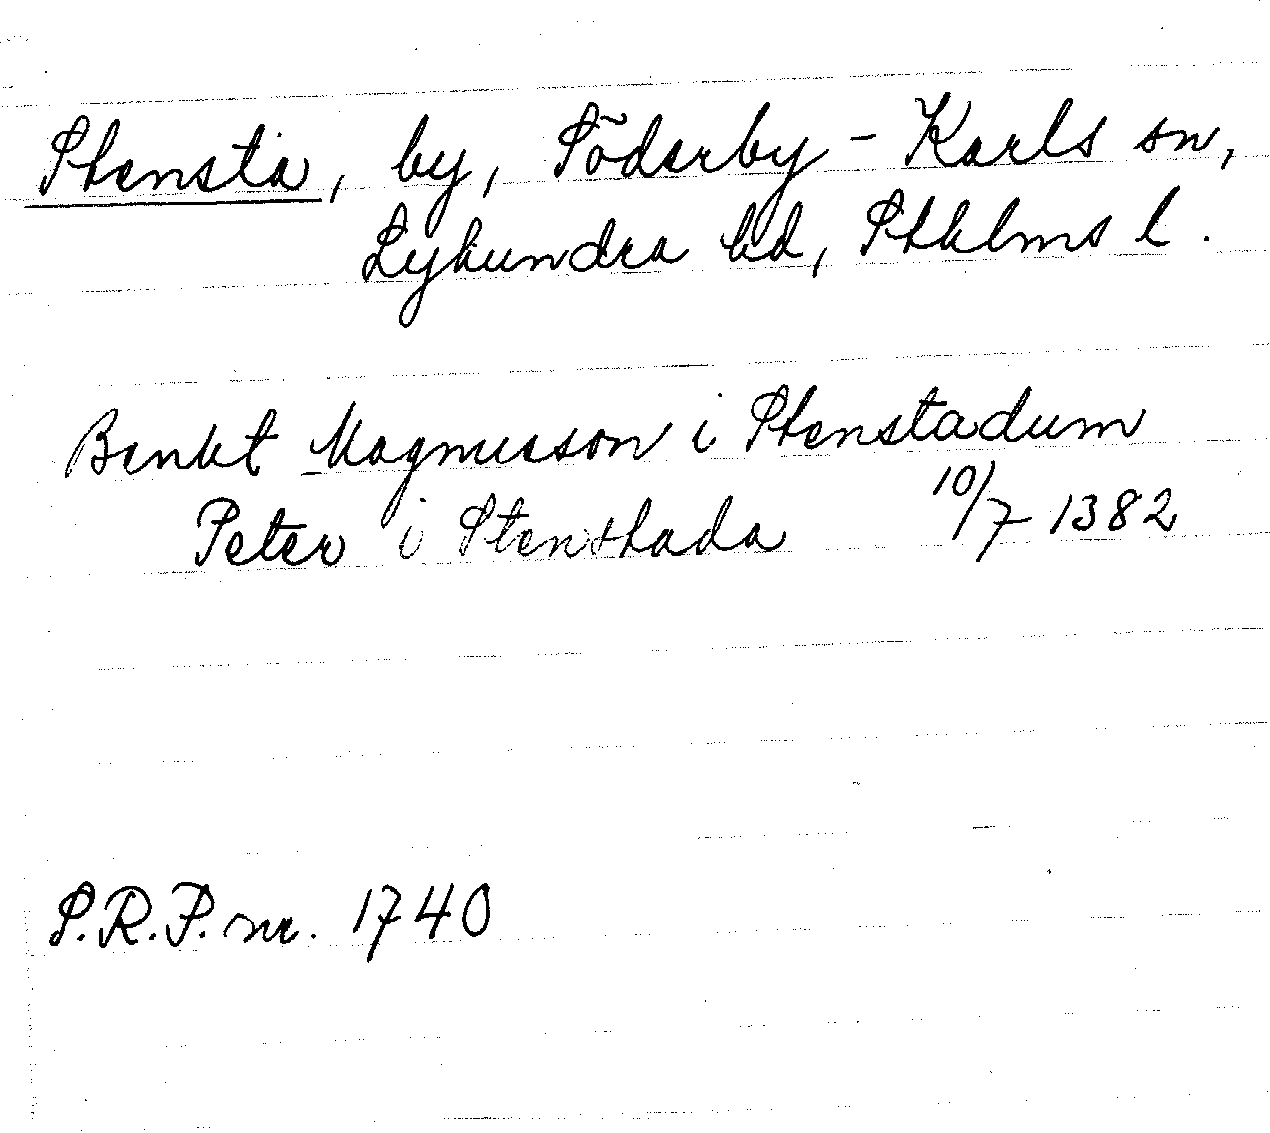 Stensta, by, Söderby-Karls sn,
Lyhundra hd, Sthlms l.
Benkt Magnusson i Stenstadum
Peter i Stenstada 10/7 1382
S.R.P. nr. 1740